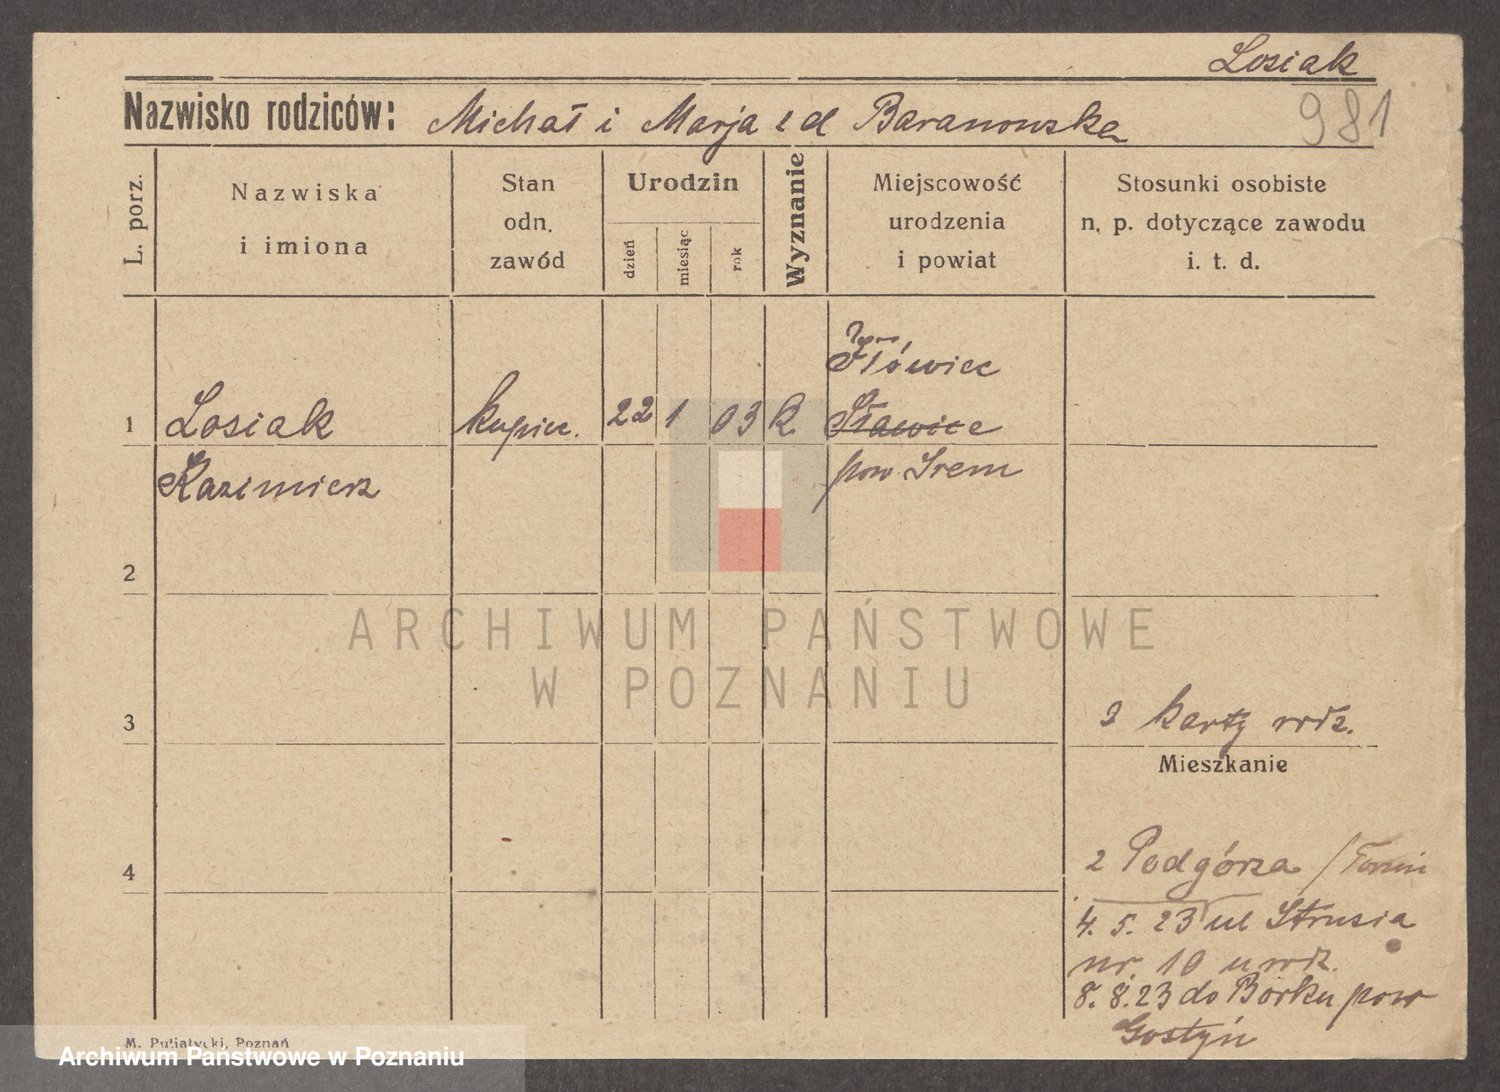 Losiak
Nazwisko rodziców: Michał i Marja z d Baranowska
981
L. porz.
Nazwiska i imiona
Stan odn. zawód
Urodzin
dzień miesiąc rok
Wyznanie
Miejscowość urodzenia i powiat
Stosunki osobiste n. p. dotyczące zawodu i. t. d.
Iłówiec
1 Losiak kupiec. 22 1 03 k Sławice
Kazimierz pow Śrem
2
ARCHIWUM PAŃSTWOWE
W POZNANIU
3
z karty rodz.
Mieszkanie
4
z Podgórza /Toruń
4. 5. 23 ul Strusia
nr. 10 u rodz.
8. 8. 23 do Borku pow
Gostyń
M. Putiatycki, Poznań
Archiwum Państwowe w Poznaniu